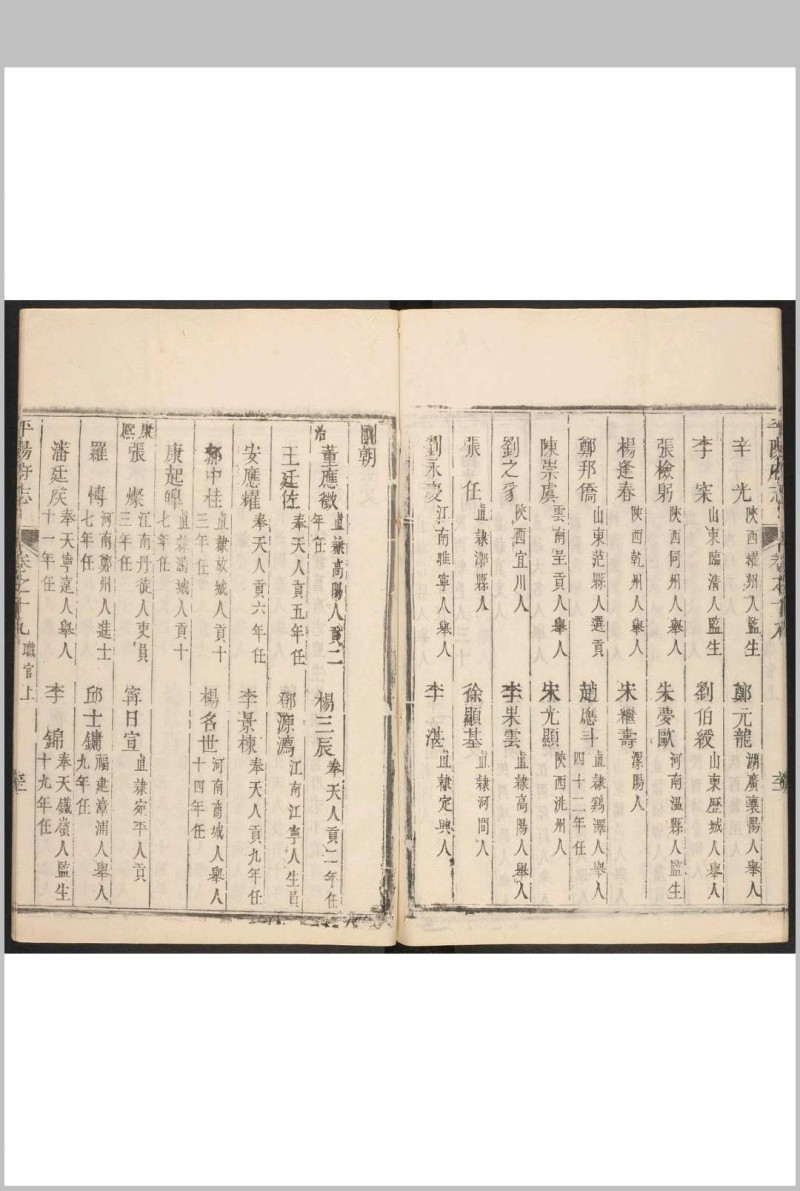 辛光陝西耀州人監生　鄭元龍湖廣襄陽人舉人
李寀山東臨清人監生　劉伯綬山東歷城人舉人
張檢躬陝西同州人舉人　朱夢歐河南溫縣人監生
楊逢春陝西乾州人舉人　宋繼壽濼陽人
鄭邦僑山東范縣人選貢　趙應斗直隸鷄澤人舉人四十二年任
陳崇虞雲南呈貢人舉人　宋光顯陝西洮州人
劉之豸陝西宜川人　李果雲直隸高陽人舉人
張任直隸漷縣人　徐顯基直隸河間人
劉永慶江南睢寧人舉人　李湛直隸定興人
國朝
治董應徵直隸高陽人貢二年任　楊三辰奉天人貢二年任
王廷佐奉天人貢五年任　鄧源㵾江南江寧人生員
安應耀奉天人貢六年任　李景棟奉天人貢九年任
郝中桂直隸故城人貢十三年任　楊名世河南商城人舉人十四年任
康起暤直隸滿城人貢十七年任
康熙張燦江南丹徒人吏員三年任　甯日宣直隸宛平人貢
羅愽河南鄭州人進士七年任　邱士鏞福建漳浦人舉人九年任
潘廷侯奉天寧遠人舉人十一年任　李錦奉天鐵嶺人監生十九年任
平陽府志　卷之十九　職官上